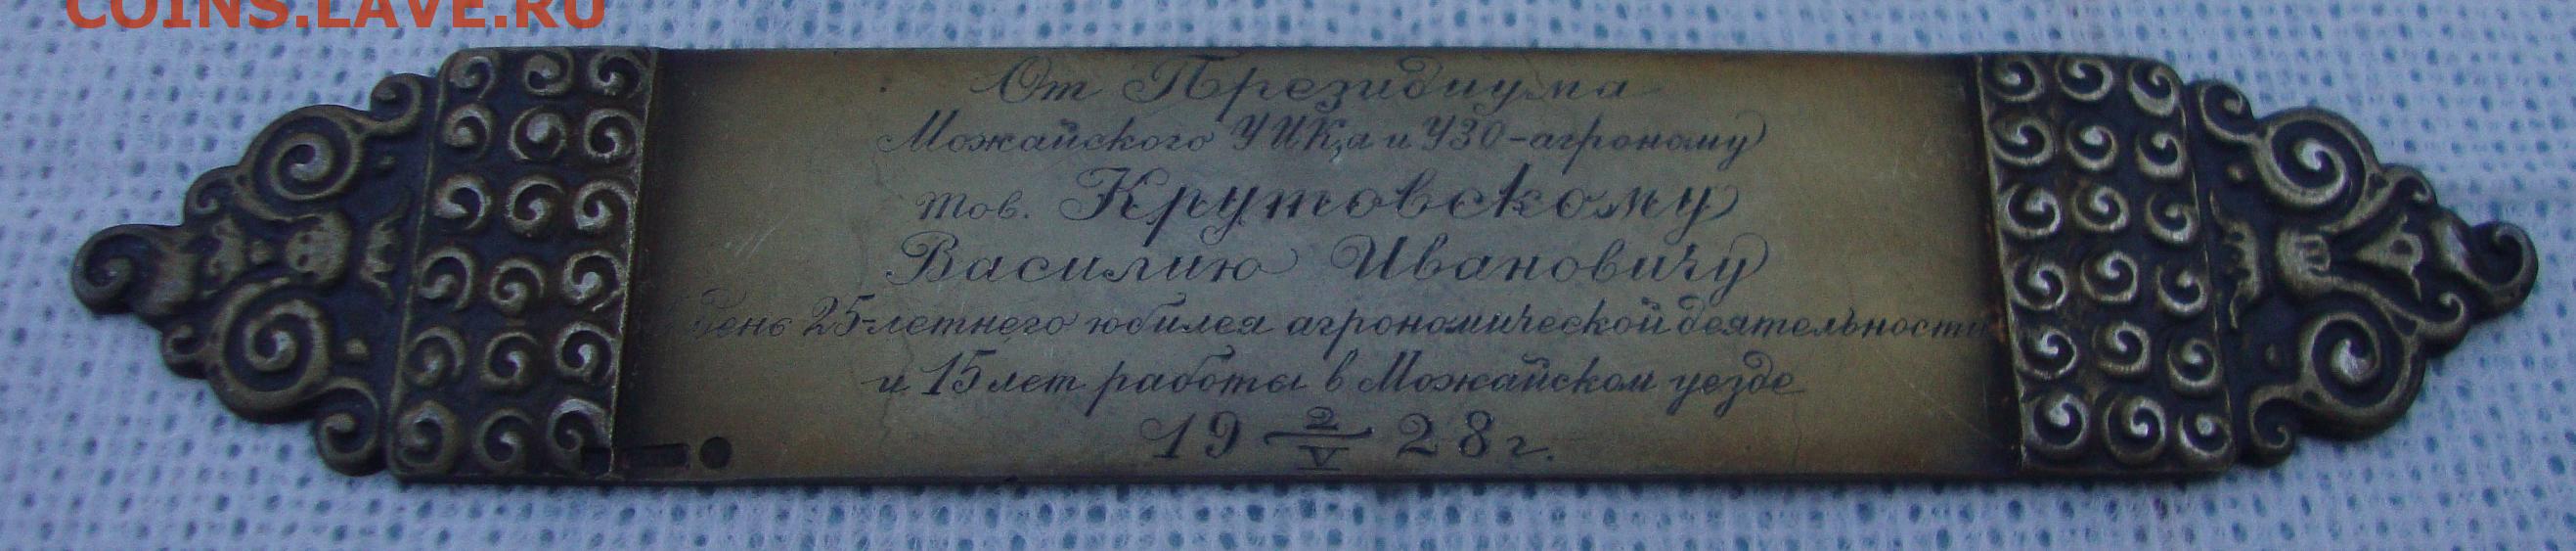 COINS.LAVE.RU
От Президиума
Можайского УИК,а и УЗО-агроному
тов. Крутовскому
Василию Ивановичу
день 25-летнего юбилея агрономической деятельности
и 15 лет работы в Можайском уезде
19 2/V 28 г.